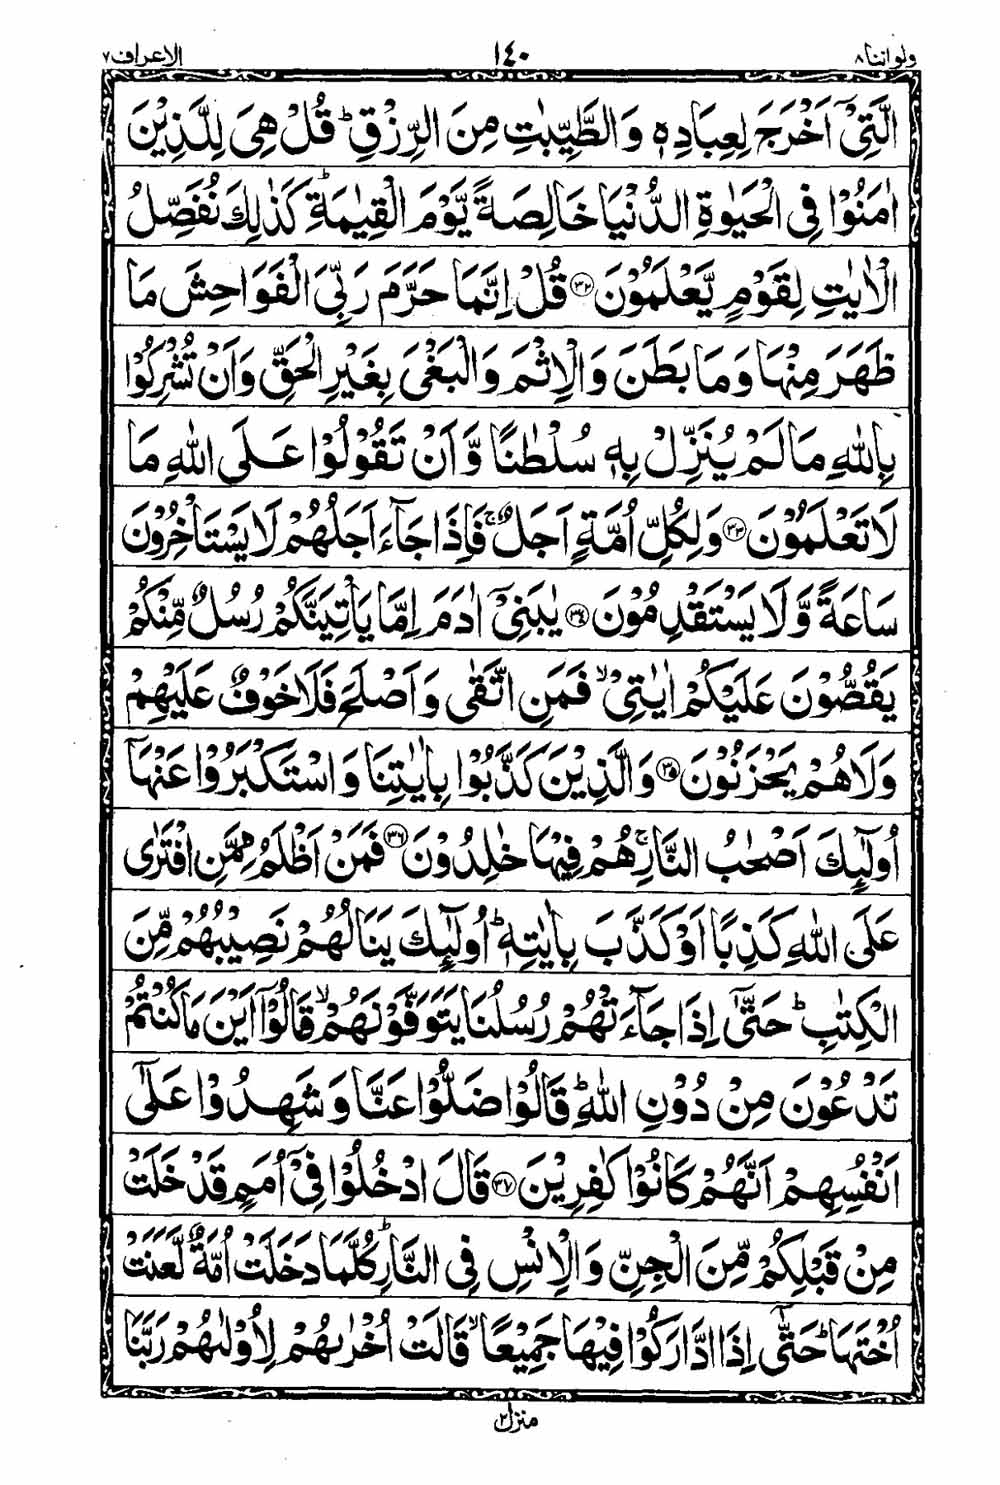 ولواننا ٨ ١٤٠ الاعراف ٧
الَّتِیْۤ اَخْرَجَ لِعِبَادِهٖ وَالطَّیِّبٰتِ مِنَ الرِّزْقِ ؕ قُلْ هِیَ لِلَّذِیْنَ
اٰمَنُوْا فِی الْحَیٰوةِ الدُّنْیَا خَالِصَةً یَّوْمَ الْقِیٰمَةِ ؕ كَذٰلِكَ نُفَصِّلُ
الْاٰیٰتِ لِقَوْمٍ یَّعْلَمُوْنَ ﴿٣٢﴾ قُلْ اِنَّمَا حَرَّمَ رَبِّیَ الْفَوَاحِشَ مَا
ظَهَرَ مِنْهَا وَمَا بَطَنَ وَالْاِثْمَ وَالْبَغْیَ بِغَیْرِ الْحَقِّ وَاَنْ تُشْرِكُوْا
بِاللّٰهِ مَا لَمْ یُنَزِّلْ بِهٖ سُلْطٰنًا وَّاَنْ تَقُوْلُوْا عَلَی اللّٰهِ مَا
لَا تَعْلَمُوْنَ ﴿٣٣﴾ وَلِكُلِّ اُمَّةٍ اَجَلٌ ۚ فَاِذَا جَآءَ اَجَلُهُمْ لَا یَسْتَاْخِرُوْنَ
سَاعَةً وَّلَا یَسْتَقْدِمُوْنَ ﴿٣٤﴾ یٰبَنِیْۤ اٰدَمَ اِمَّا یَاْتِیَنَّكُمْ رُسُلٌ مِّنْكُمْ
یَقُصُّوْنَ عَلَیْكُمْ اٰیٰتِیْ ۙ فَمَنِ اتَّقٰی وَاَصْلَحَ فَلَا خَوْفٌ عَلَیْهِمْ
وَلَا هُمْ یَحْزَنُوْنَ ﴿٣٥﴾ وَالَّذِیْنَ كَذَّبُوْا بِاٰیٰتِنَا وَاسْتَكْبَرُوْا عَنْهَاۤ
اُولٰٓئِكَ اَصْحٰبُ النَّارِ ۚ هُمْ فِیْهَا خٰلِدُوْنَ ﴿٣٦﴾ فَمَنْ اَظْلَمُ مِمَّنِ افْتَرٰی
عَلَی اللّٰهِ كَذِبًا اَوْ كَذَّبَ بِاٰیٰتِهٖ ؕ اُولٰٓئِكَ یَنَالُهُمْ نَصِیْبُهُمْ مِّنَ
الْكِتٰبِ ؕ حَتّٰۤی اِذَا جَآءَتْهُمْ رُسُلُنَا یَتَوَفَّوْنَهُمْ ۙ قَالُوْۤا اَیْنَ مَا كُنْتُمْ
تَدْعُوْنَ مِنْ دُوْنِ اللّٰهِ ؕ قَالُوْا ضَلُّوْا عَنَّا وَشَهِدُوْا عَلٰۤی
اَنْفُسِهِمْ اَنَّهُمْ كَانُوْا كٰفِرِیْنَ ﴿٣٧﴾ قَالَ ادْخُلُوْا فِیْۤ اُمَمٍ قَدْ خَلَتْ
مِنْ قَبْلِكُمْ مِّنَ الْجِنِّ وَالْاِنْسِ فِی النَّارِ ؕ كُلَّمَا دَخَلَتْ اُمَّةٌ لَّعَنَتْ
اُخْتَهَا ؕ حَتّٰۤی اِذَا ادَّارَكُوْا فِیْهَا جَمِیْعًا ۙ قَالَتْ اُخْرٰىهُمْ لِاُوْلٰىهُمْ رَبَّنَا
منزل ٢